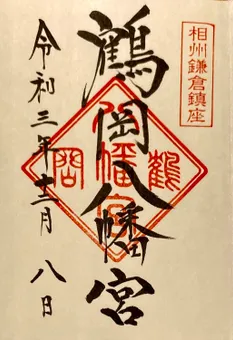 相州鎌倉鎮座
鶴岡八幡宮
鶴岡八幡宮
令和三年十二月八日